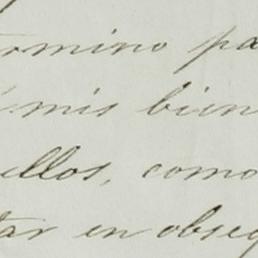 termino pa
mis bien
ellos, como
tar en obseq